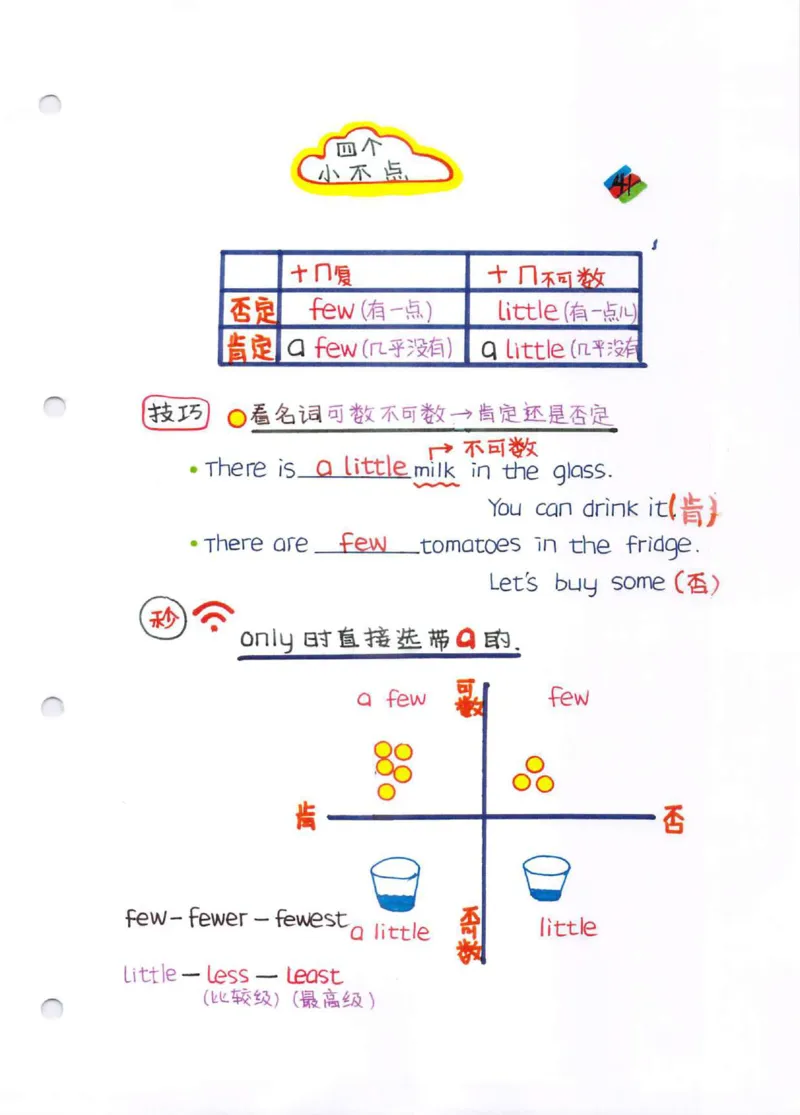 四个
小不点
41
+ 冂复
+ 冂不可数
否定 few (有一点) little (有一点儿)
肯定 a few (几乎没有) a little (几乎没有
技巧 看名词可数不可数→肯定还是否定
不可数
• There is a little milk in the glass.
You can drink it (肯)
• There are few tomatoes in the fridge.
Let's buy some (否)
秒
only 时直接选带a的.
a few 可数 few
肯 否
few - fewer - fewest
a little 不可数 little
little - less - least
(比较级) (最高级)